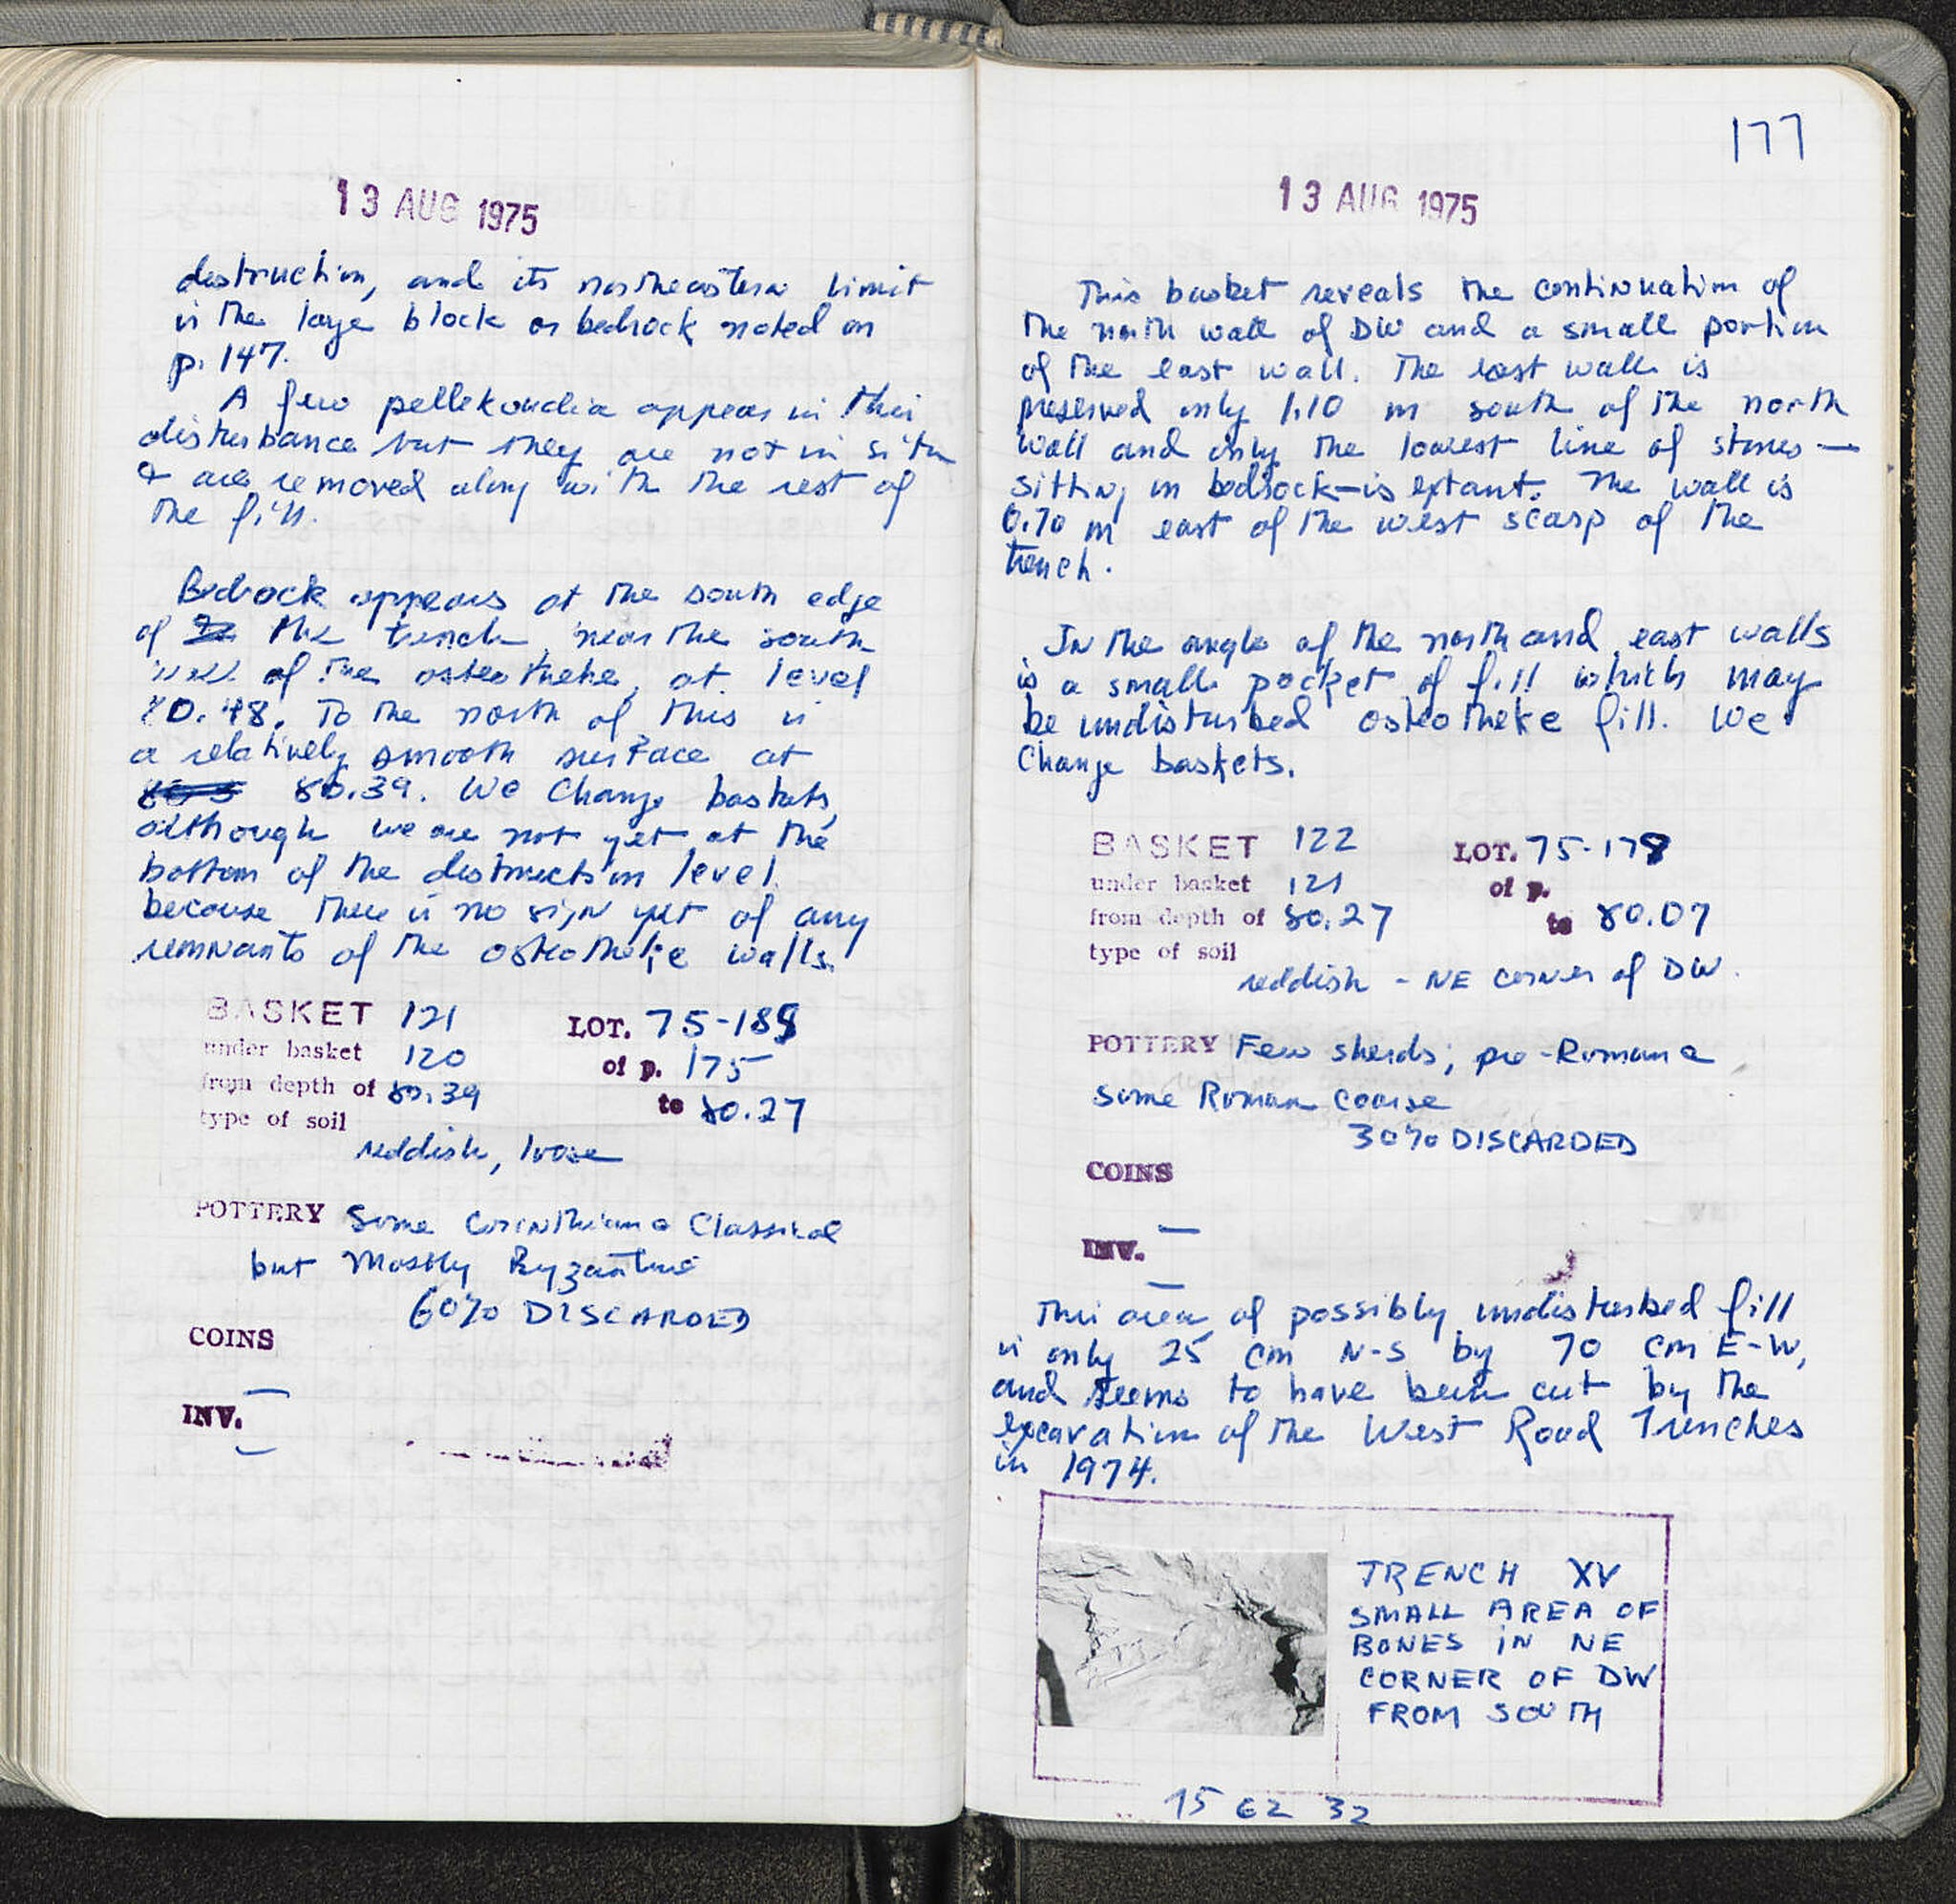 13 AUG 1975
destruction, and its northeastern limit
is the large block or bedrock noted on
p. 147.
A few pellekoudia appear in this
disturbance but they are not in situ
& are removed along with the rest of
the fill.
Bedrock appears at the south edge
of the trench near the south
wall of the osteotheke, at level
80.48. To the north of this is
a relatively smooth surface at
80.39. We change baskets,
although we are not yet at the
bottom of the destruction level
because there is no sign yet of any
remnants of the osteotheke walls.
BASKET 121 LOT. 75-185
under basket 120 of p. 175
from depth of 80.39 to 80.27
type of soil
reddish, loose
POTTERY Some Corinthian & Classical
but Mostly Byzantine
60% DISCARDED
COINS
—
INV.
—
177
13 AUG 1975
This basket reveals the continuation of
the north wall of DW and a small portion
of the east wall. The east wall is
preserved only 1.10 m south of the north
wall and only the lowest line of stones —
sitting on bedrock—is extant. The wall is
0.70 m east of the west scarp of the
trench.
In the angle of the north and east walls
is a small pocket of fill which may
be undisturbed osteotheke fill. We
change baskets.
BASKET 122 LOT. 75-178
under basket 121 of p.
from depth of 80.27 to 80.07
type of soil
reddish - NE corner of DW.
POTTERY Few sherds; pre-Roman &
some Roman coarse
30% DISCARDED
COINS
—
INV.
—
This area of possibly undisturbed fill
is only 25 cm N-S by 70 cm E-W,
and seems to have been cut by the
excavation of the West Road Trenches
in 1974.
TRENCH XV
SMALL AREA OF
BONES IN NE
CORNER OF DW
FROM SOUTH
75 62 32